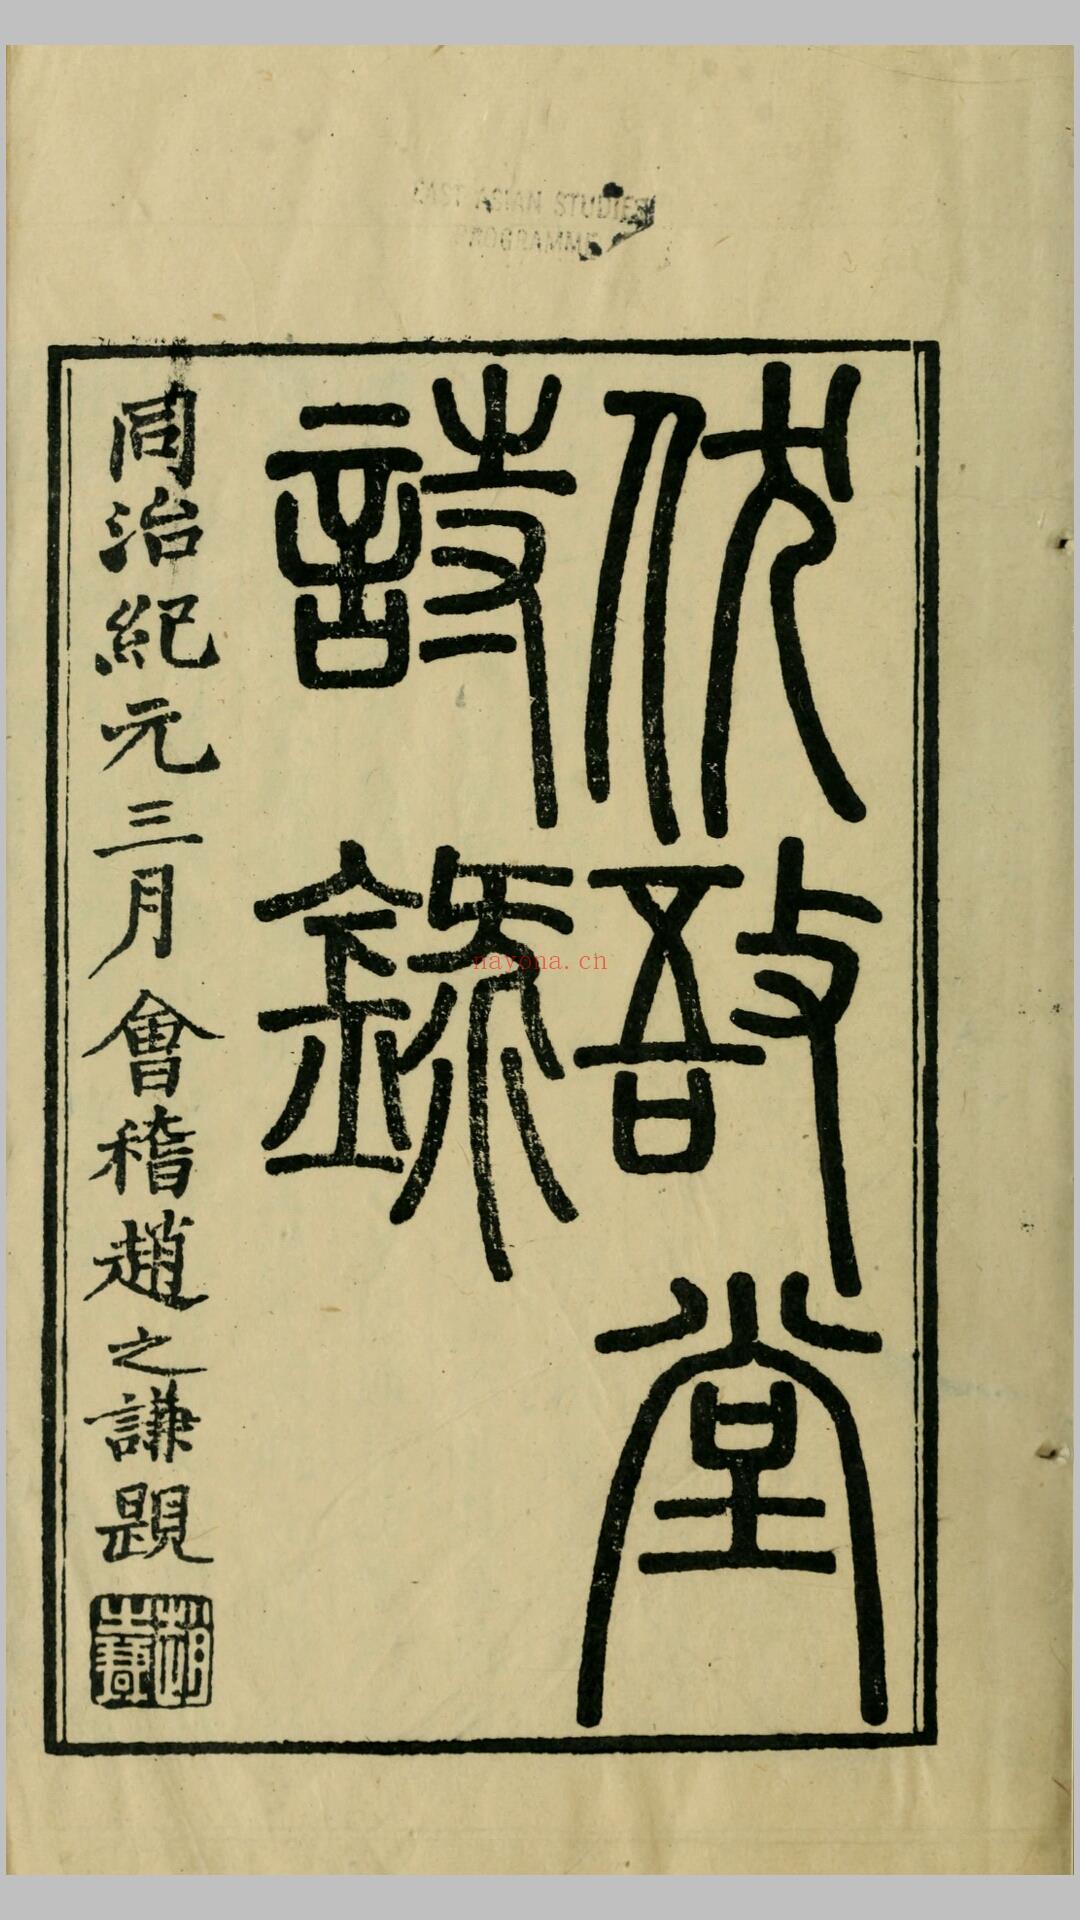 EAST ASIAN STUDIES
PROGRAMME
伏敔堂
詩錄
同治紀元三月會稽趙之謙題
nayona.cn